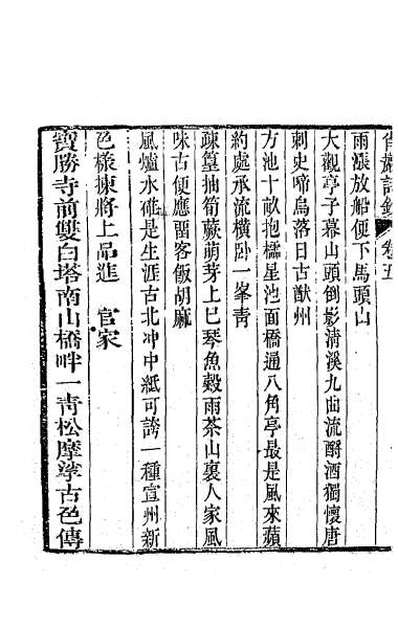 詩鈔 卷五
雨漲放船便下馬頭山
大觀亭子幕山頭倒影清溪九曲流酹酒獨懷唐
刺史啼烏落日古猷州
方池十畝抱櫺星池面橋通八角亭最是風來蘋
約處承流橫卧一峯靑
疎篁抽筍蕨萌芽上巳琴魚穀雨茶山裏人家風
味古便應畱客飯胡麻
風爐水碓是生涯古北冲中紙可誇一種宣州新
色樣揀將上品進 官家
寶勝寺前雙白塔南山橋畔一靑松摩挲古色傳